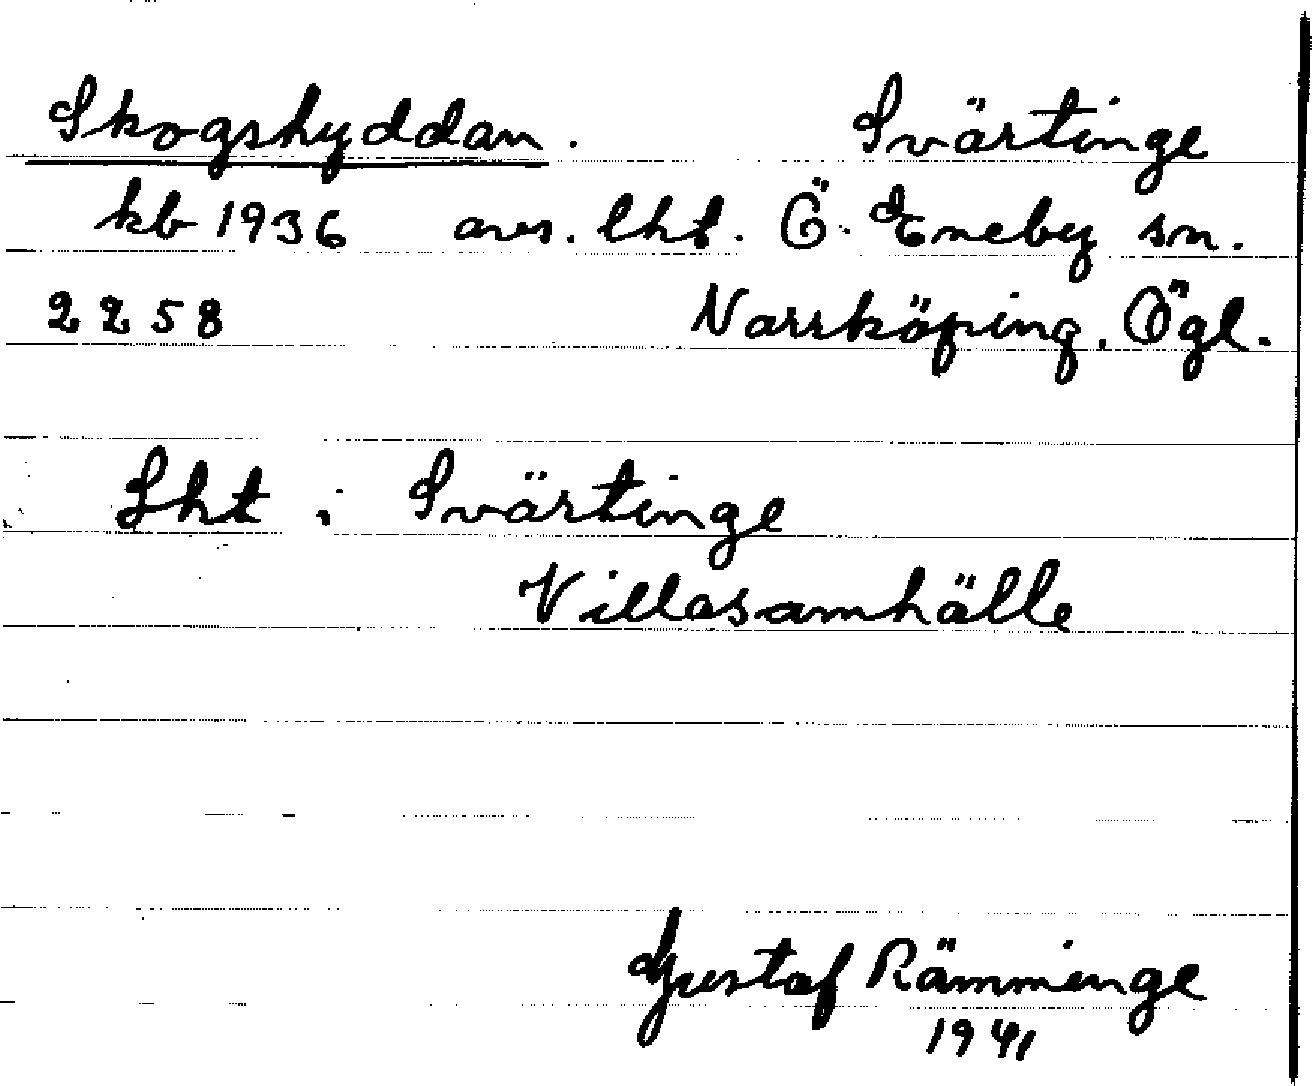 Skogshyddan. Svärtinge
kb 1936 avs. lht. Ö. Eneby sn.
2258 Norrköping. Ögl.
Lht i Svärtinge
Villasamhälle
Gustaf Rämminge
1941